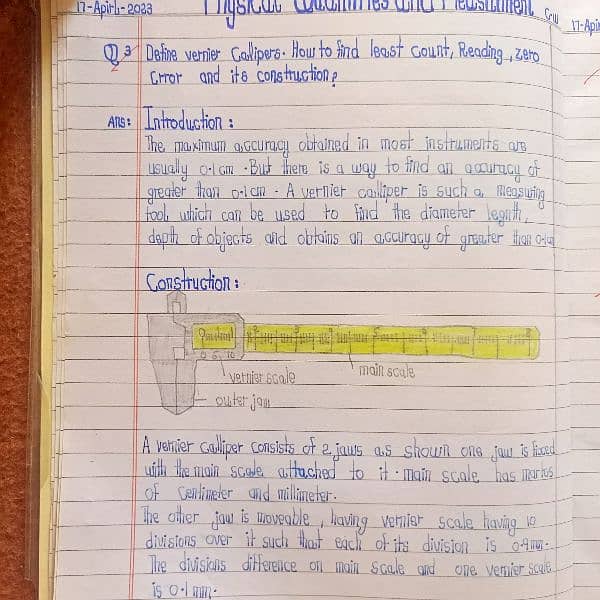 17-Apirl-2023 Physical Quantities and Measurment C.w
17-Apir
Q 3 Define vernier Callipers. How to find least count, Reading, zero
Error and its construction?
Ans: Introduction:
The maximum accuracy obtained in most instruments are
usually 0.1cm. But there is a way to find an accuracy of
greater than 0.1cm. A vernier calliper is such a measuring
tool, which can be used to find the diameter legnth,
depth of objects and obtains an accuracy of greater than 0.1cm
Construction:
0 5 10
vernier scale
main scale
outer jaw
A vernier calliper consists of 2 jaws as shown one jaw is fixed
with the main scale attached to it. main scale has marks
of centimeter and millimeter.
The other jaw is moveable, having vernier scale having 10
divisions over it such that each of its division is 0.9mm.
The divisions difference on main scale and one vernier scale
is 0.1mm.